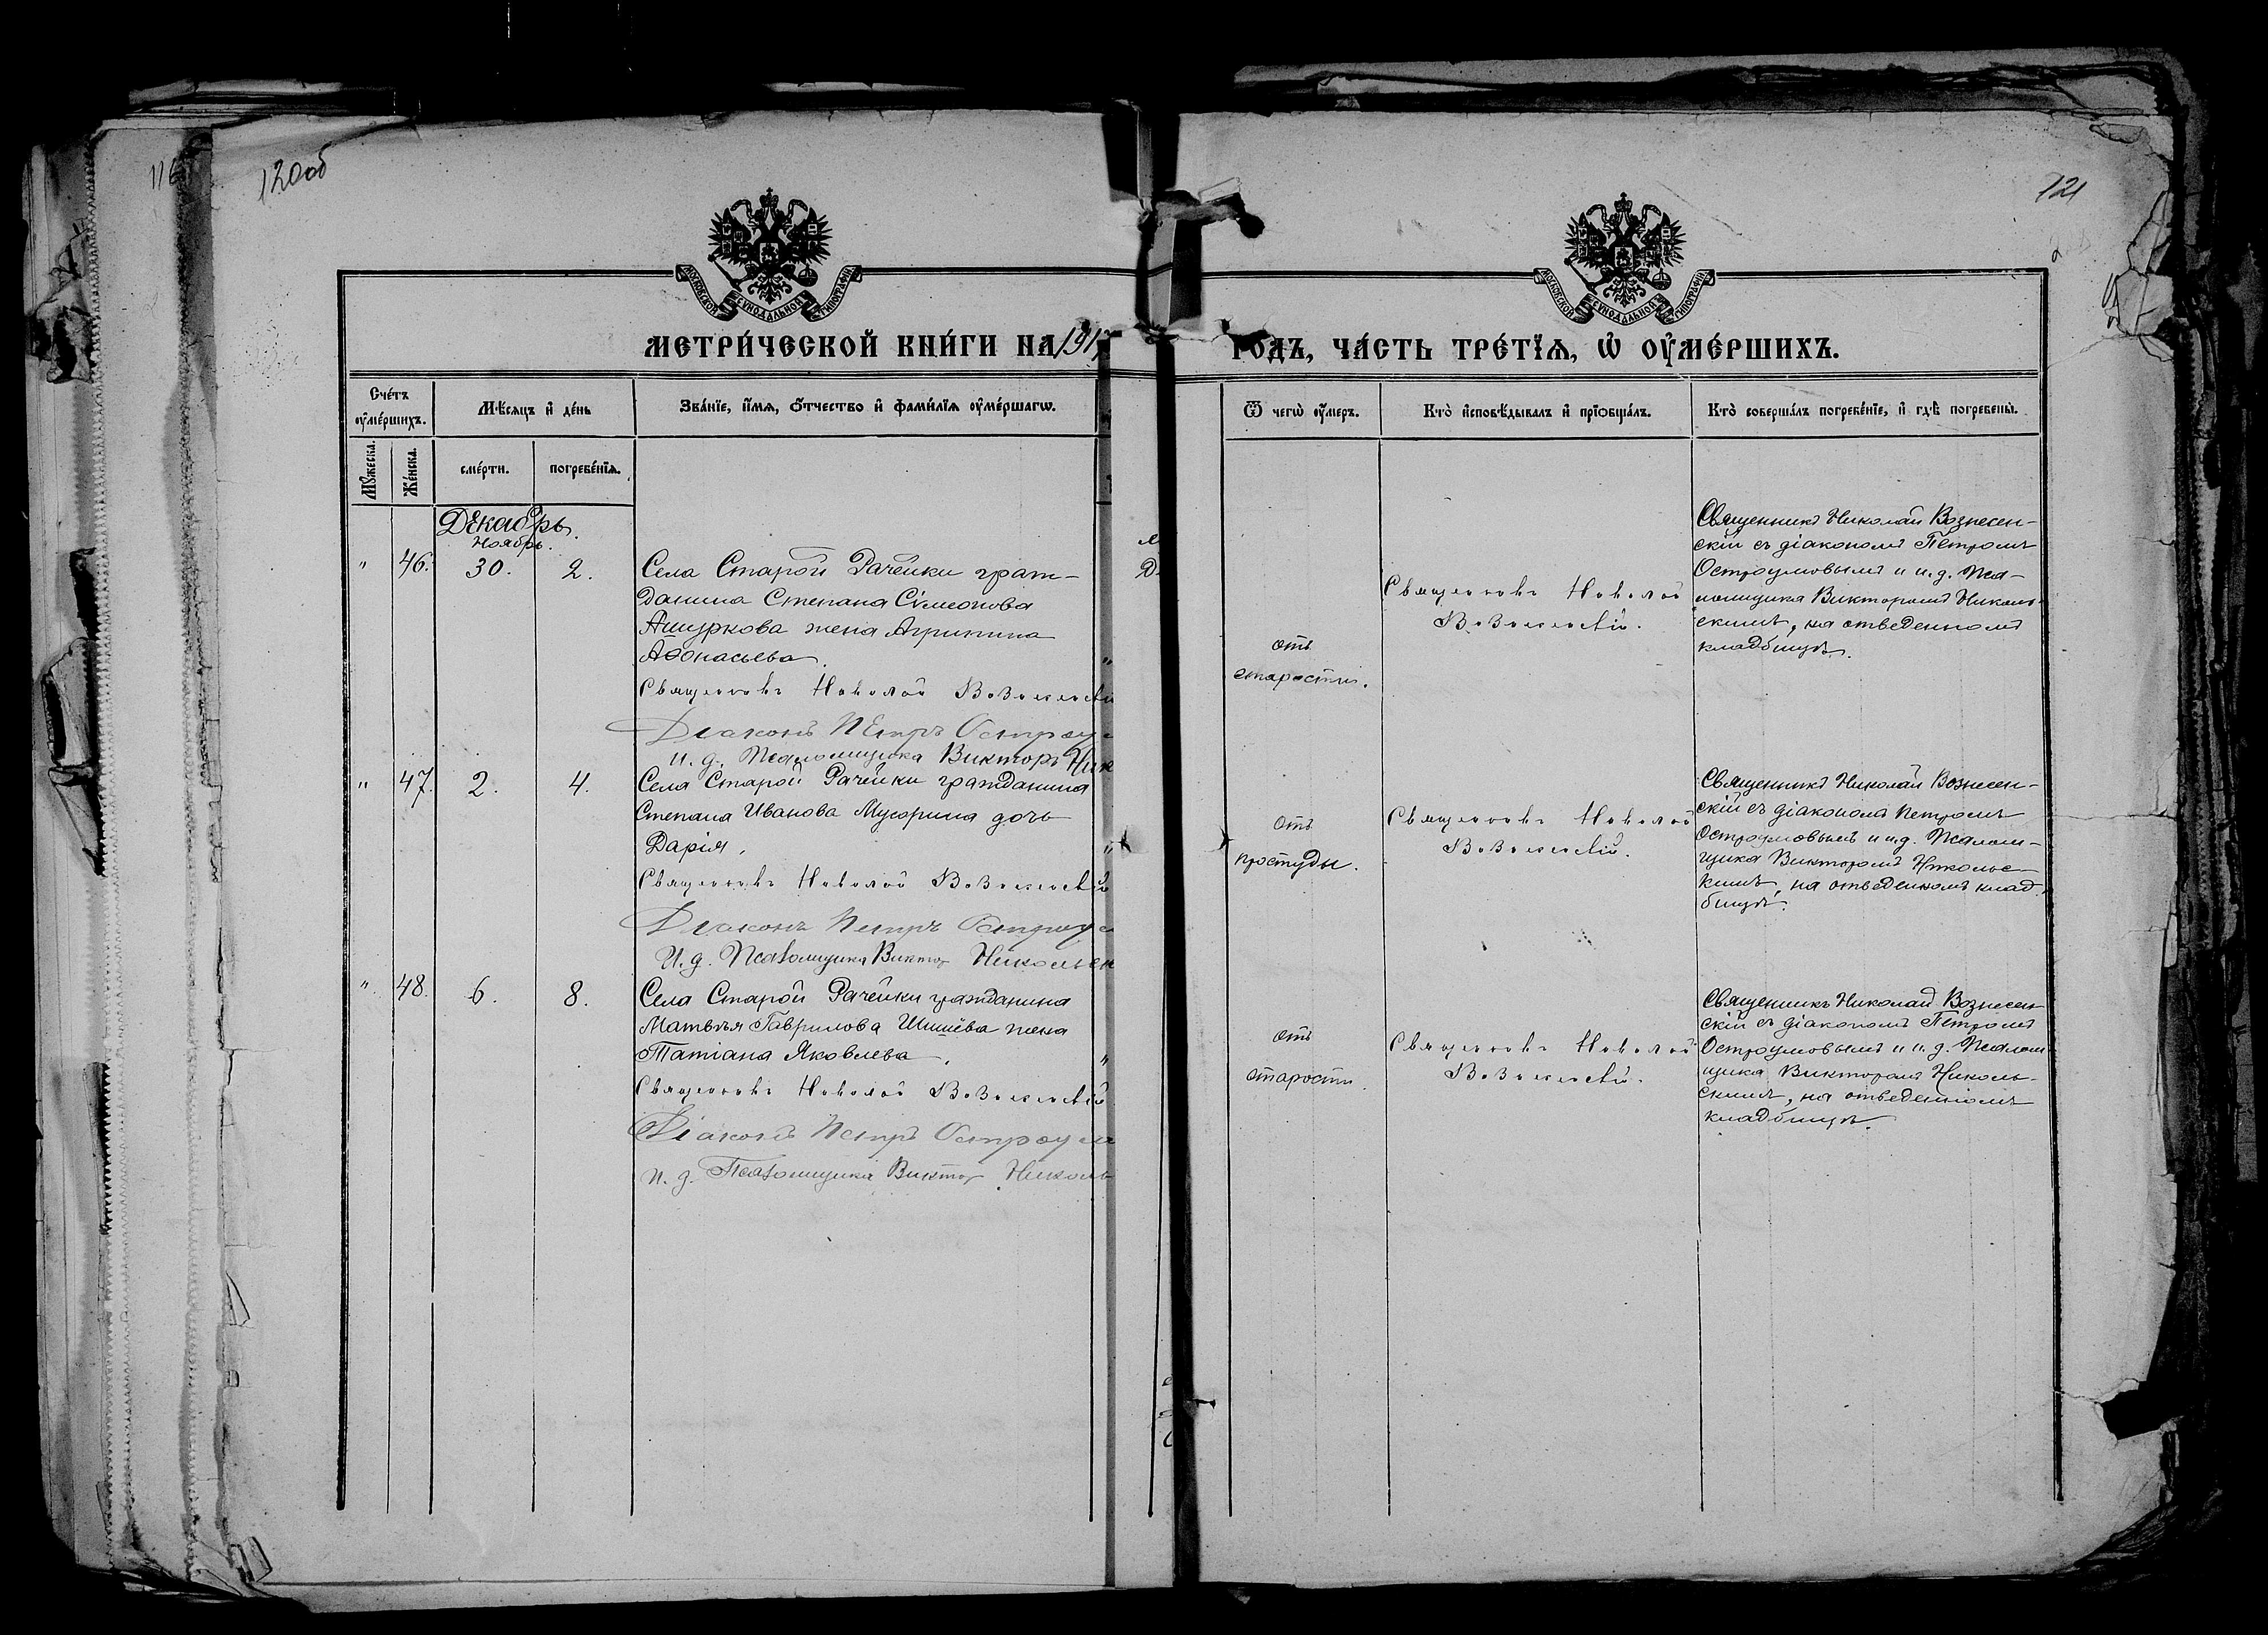 116
120об
121
МОСКОВСКОЙ СУНОДАЛЬНОЙ ТИПОГРАФІИ
МОСКОВСКОЙ СУНОДАЛЬНОЙ ТИПОГРАФІИ
МЕТРИ́ЧЕСКОЙ КНИ́ГИ НА 1917
ГОДЪ, ЧА́СТЬ ТРЕ́ТЇѦ, Ѡ҆ ОУ҆МЕ́РШИХЪ.
Сче́тъ оу҆ме́ршихъ.
Мѣ́сяцъ и҆ де́нь
Зва́нїе, и҆́мѧ, о҆́тчество и҆ фами́лїѧ оу҆ме́ршагѡ.
Ѿ чегѡ̀ оу҆́меръ.
Кто̀ и҆сповѣ́дывалъ и҆ прїѡбща́лъ.
Кто̀ соверша́лъ погребе́нїе, и҆ гдѣ̀ погребены̀.
Мꙋ́жеска.
Же́нска.
сме́рти.
погребе́нїѧ.
Декабрь.
Ноябрь.
" 46. 30. 2.
Села Старой Рачейки граж-
данина Степана Сімеонова
Ашуркова жена Агрипина
Аѳонасьева.
Священникъ Николай Вознесенскій
Діаконъ Петръ Остроу
и. д. Псаломщика Викторъ Ник
отъ
старости.
Священникъ Николай
Вознесенскій.
Священникъ Николай Вознесен-
скій съ діакономъ Петромъ
Остроумовымъ и и. д. Пса-
ломщика Викторомъ Николь-
скимъ, на отведенномъ
кладбищѣ.
" 47. 2. 4.
Села Старой Рачейки гражданина
Степана Иванова Мусорина дочь
Дарія.
Священникъ Николай Вознесенскій
Діаконъ Петръ Остроу
И. д. Псаломщика Виктор Никольск
Отъ
простуды.
Священникъ Николай
Вознесенскій.
Священникъ Николай Вознесен-
скій съ діакономъ Петромъ
Остроумовымъ и и.д. Псалом-
щика Викторомъ Никольс-
кимъ, на отведенномъ клад-
бищѣ.
" 48. 6. 8.
Села Старой Рачейки гражданина
Матвѣя Гаврилова Шишева жена
Татіана Яковлева.
Священникъ Николай Вознесенскій
Діаконъ Петръ Остроум
и. д. Псаломщика Виктор Николь
отъ
старости.
Священникъ Николай
Вознесенскій.
Священникъ Николай Вознесен
скій съ діакономъ Петромъ
Остроумовымъ и и. д. Псалом-
щика Викторомъ Николь-
скимъ, на отведенномъ
кладбищѣ.